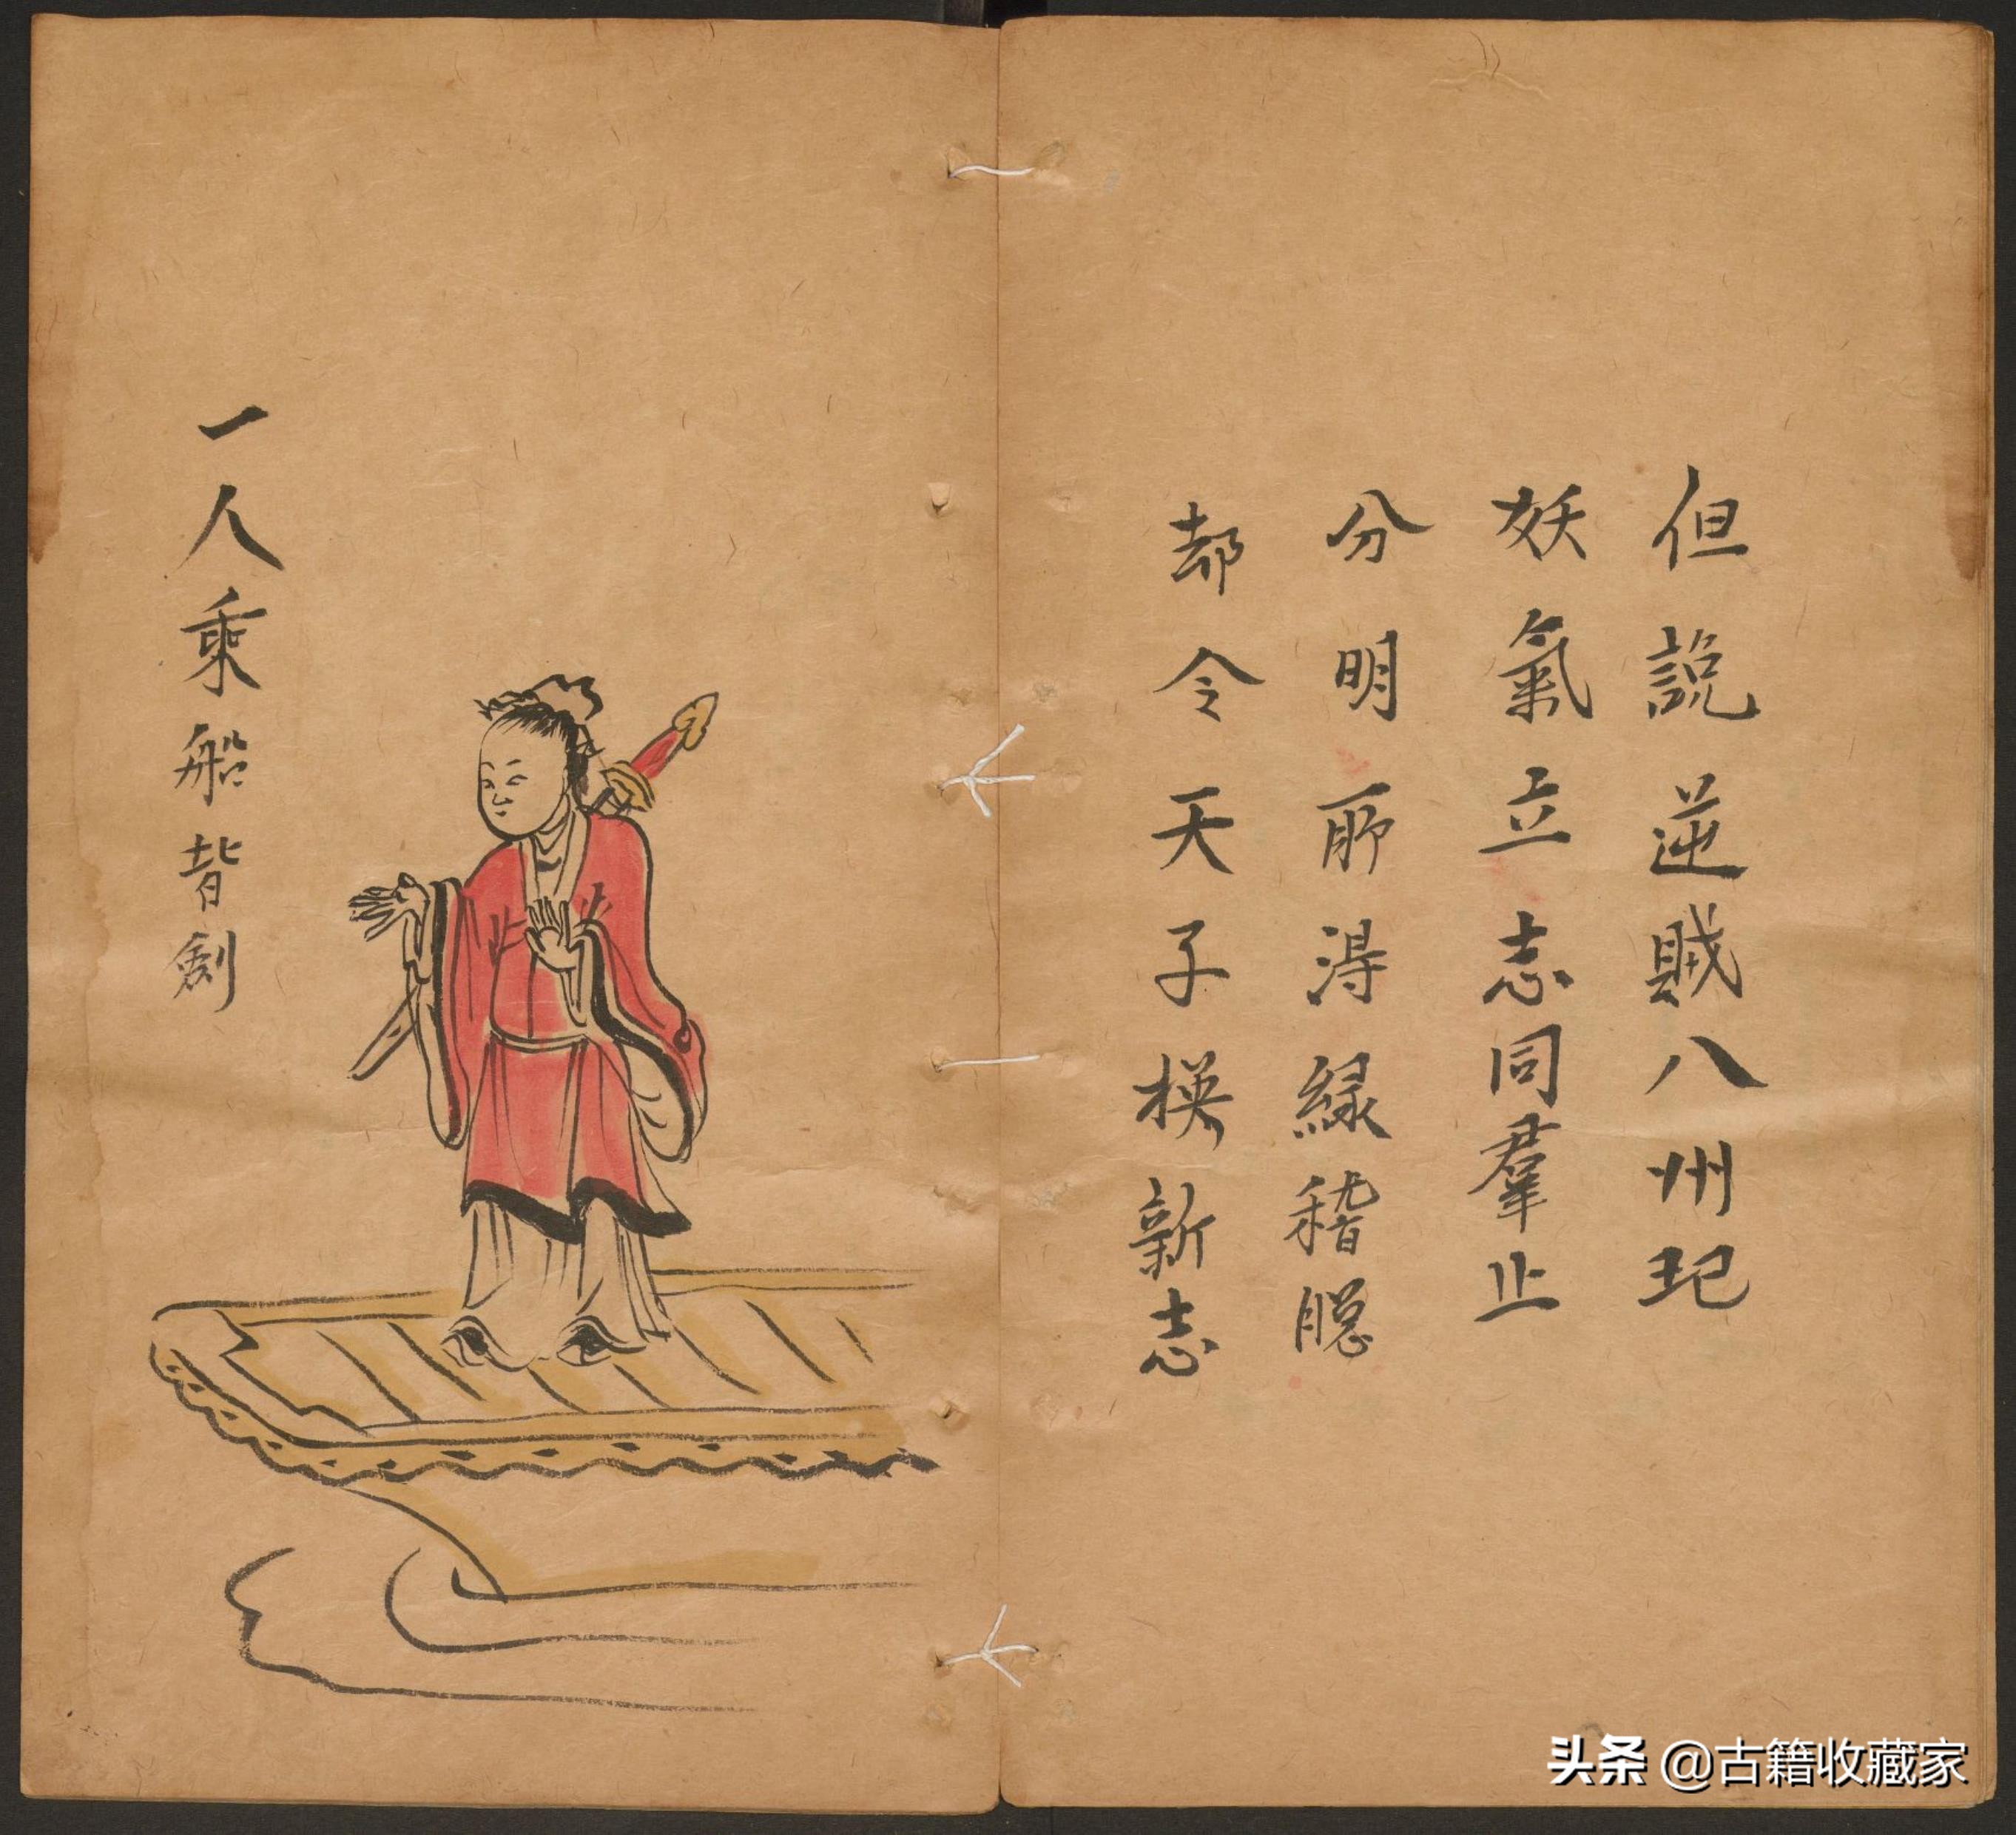 但説逆賊八州玘
妖氣立志同羣止
分明所淂緑稽
却令天子楧新志
一人乘船背劍
头条 @古籍收藏家